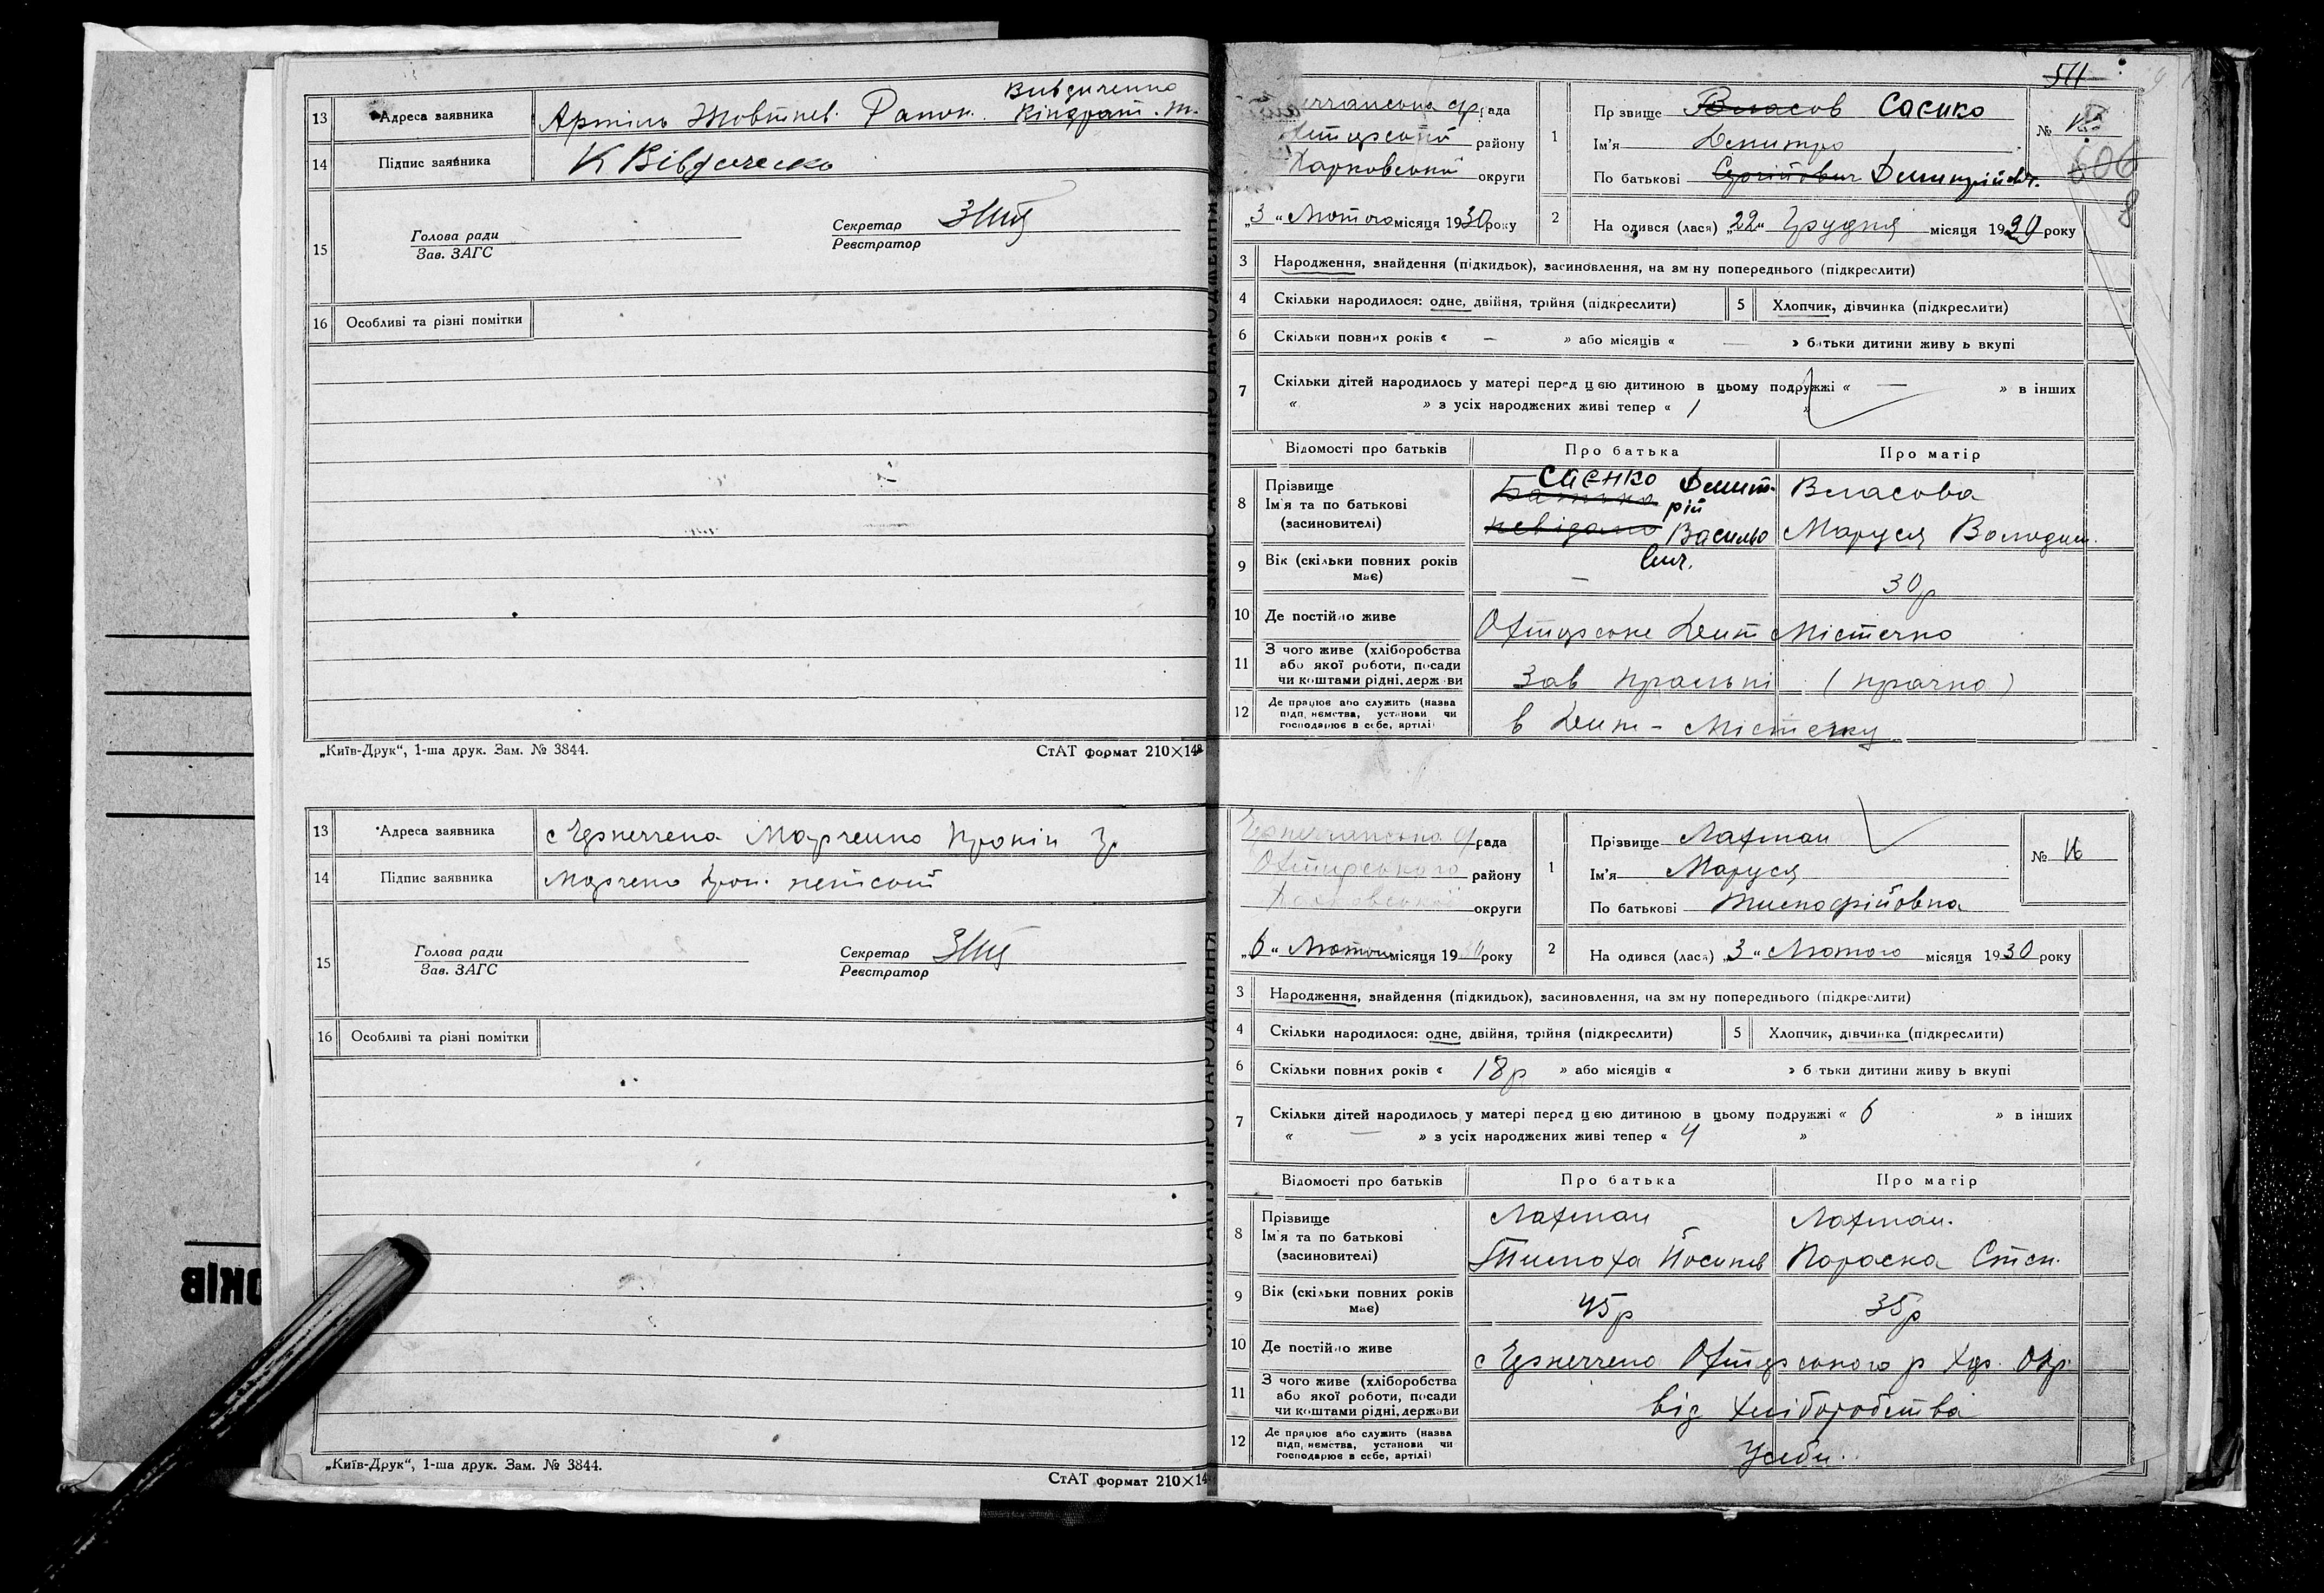 13 Адреса заявника Артіль Жовтнев. Ранок. Вивдиченко Кіндрат. М.
14 Підпис заявника К Вівдиченко
15 Голова ради
Зав. ЗАГС
Секретар
Реєстратор
16 Особливі та різні помітки
„Київ-Друк“, 1-ша друк. Зам. № 3844.
СтАТ формат 210×148
13 Адреса заявника
14 Підпис заявника
15 Голова ради
Зав. ЗАГС
Секретар
Реєстратор
16 Особливі та різні помітки
„Київ-Друк“, 1-ша друк. Зам. № 3844.
СтАТ формат 210×14
ОКІВ
ЗАПИС АКТУ ПРО НАРОДЖЕННЯ
511
рада
району
Харковської округи
„3“ Лютого місяця 1930 року
1 Прізвище Власов Саєнко
Ім'я Дмитро
По батькові Сергійович Дмитрійович.
№
606
8
2 На одився (лася) „22“ Грудня місяця 1929 року
3 Народження, знайдення (підкидьок), засиновлення, на зм ну попереднього (підкреслити)
4 Скільки народилося: одне, двійня, трійня (підкреслити) 5 Хлопчик, дівчинка (підкреслити)
6 Скільки повних років « — » або місяців « — » батьки дитини живу ь вкупі
7 Скільки дітей народилось у матері перед цією дитиною в цьому подружжі « — » в інших
« » з усіх народжених живі тепер « 1 »
Відомості про батьків Про батька Про матір
8 Прізвище
Ім'я та по батькові
(засиновителі)
Саєнко Дмит-
рій
Батько
невідомо Васильо
вич.
Власова
Маруся Володим.
9 Вік (скільки повних років має) — 30р
10 Де постійно живе Охтирське Дит Містечко
11 З чого живе (хліборобства
або якої роботи, посади
чи коштами рідні, держави
Зав Пральні (прачка)
12 Де працює або служить (назва
підп, ємства, установи чи
господарює в себе, артілі)
в Дит-Містечку
рада
Охтирського району
Харковської округи
„6“ Лютого місяця 19 року
1 Прізвище Лахман
Ім'я Маруся
По батькові Тимофійовна
№
2 На одився (лася) „3“ Лютого місяця 1930 року
3 Народження, знайдення (підкидьок), засиновлення, на зм ну попереднього (підкреслити)
4 Скільки народилося: одне, двійня, трійня (підкреслити) 5 Хлопчик, дівчинка (підкреслити)
6 Скільки повних років « 18р » або місяців « » б тьки дитини живу ь вкупі
7 Скільки дітей народилось у матері перед цією дитиною в цьому подружжі « 6 » в інших
« — » з усіх народжених живі тепер « 4 »
Відомості про батьків Про батька Про матір
8 Прізвище
Ім'я та по батькові
(засиновителі)
Лахман
Тимоха Йосипов
Лахман.
Параска Степ.
9 Вік (скільки повних років має) 45р 35р
10 Де постійно живе Охтирського р Хар. Окр.
11 З чого живе (хліборобства
або якої роботи, посади
чи коштами рідні, держави
від хліборобства
12 Де працює або служить (назва
підп, ємства, установи чи
господарює в себе, артілі)
Усебе.